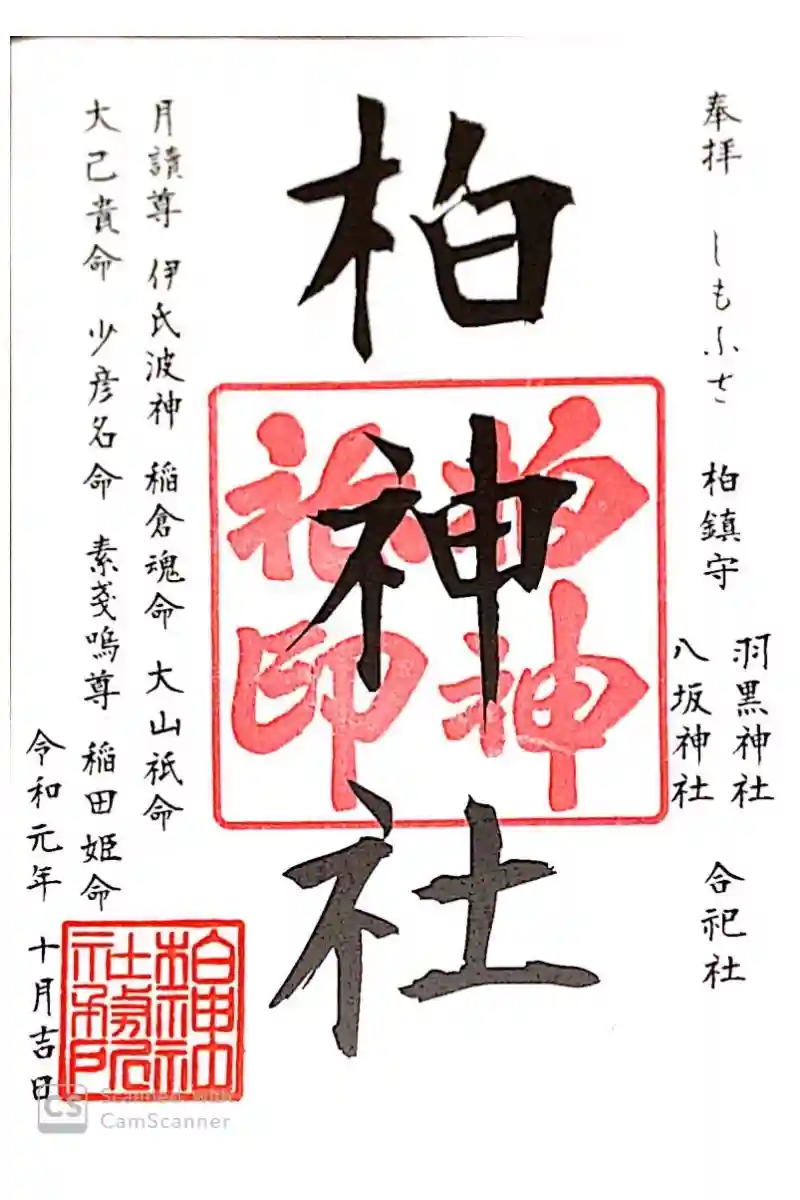 奉拝 しもふさ 柏鎮守
羽黒神社
八坂神社
合祀社
柏神社
柏神
社印
月讀尊 伊氏波神 稲倉魂命 大山祇命
大己貴命 少彦名命 素戔嗚尊 稲田姫命
令和元年 十月吉日
柏神社
社務所
CS Scanned with
CamScanner